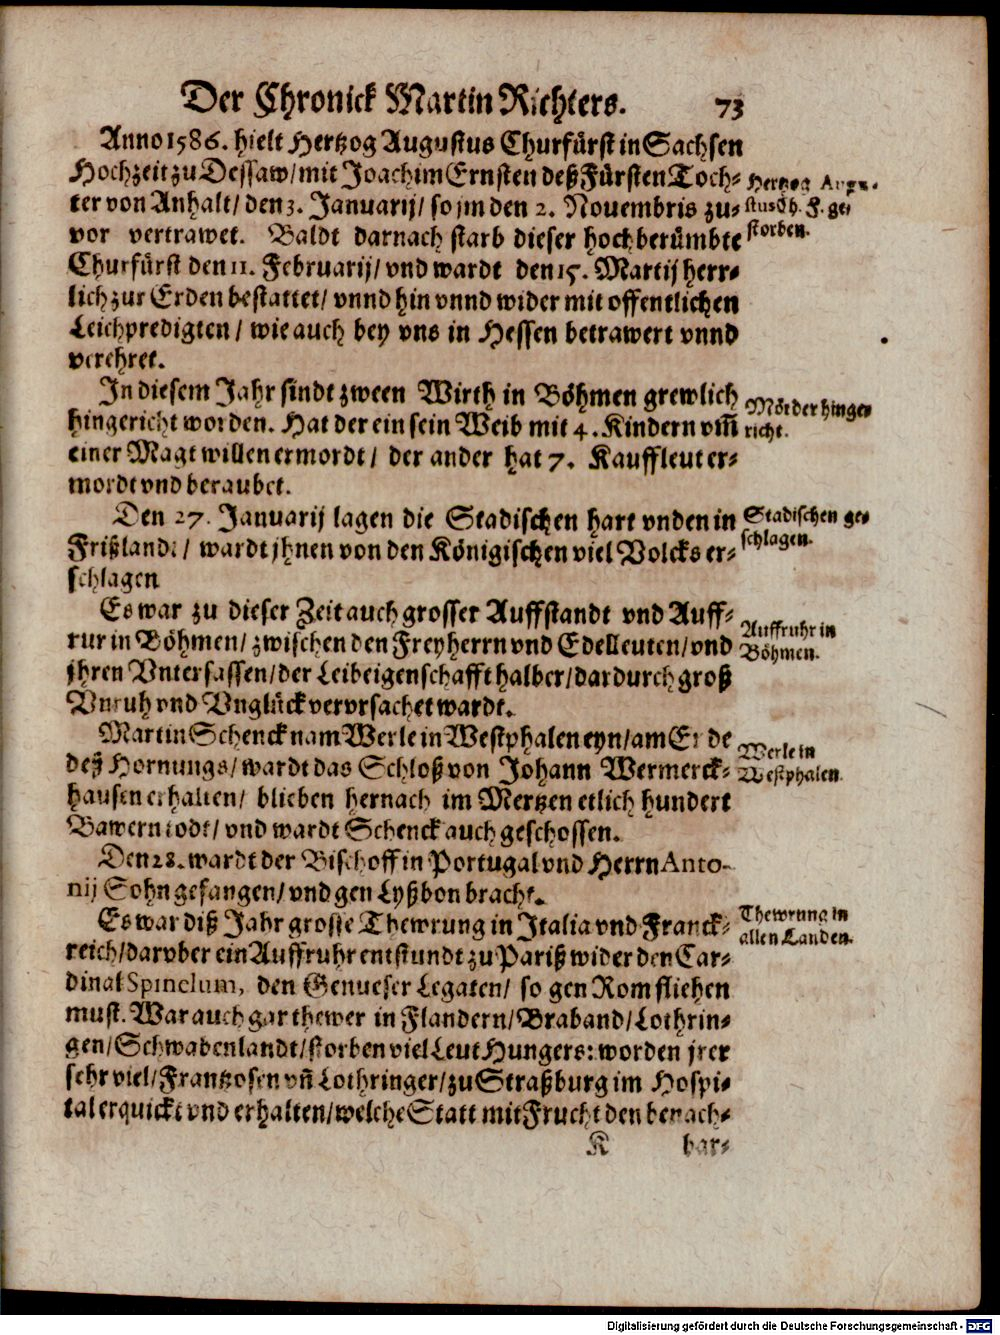 Der Chronick Martin Richters. 73
Anno 1586. hielt Hertzog Augustus Churfürst in Sachsen
Hochzeit zu Dessaw/ mit Joachim Ernsten deß Fürsten Toch-
ter von Anhalt/ den 3. Januarij/ so jm den 2. Nouembris zu-
vor vertrawet. Baldt darnach starb dieser hochberümbte
Churfürst den 11. Februarij/ vnd wardt den 15. Martij herr-
lich zur Erden bestattet/ vnnd hin vnnd wider mit offentlichen
Leichpredigten/ wie auch bey vns in Hessen betrawert vnnd
verehret.
Hertzog Augu-
stus Ch. F. ge-
storben.
In diesem Jahr sindt zween Wirth in Böhmen grewlich
hingericht worden. Hat der ein sein Weib mit 4. Kindern vm̃
einer Magt willen ermordt/ der ander hat 7. Kauffleut er-
mordt vnd beraubet.
Mörder hinge-
richt.
Den 27. Januarij lagen die Stadischen hart vnden in
Frißlandt/ wardt jhnen von den Königischen viel Volcks er-
schlagen
Stadischen ge-
schlagen.
Es war zu dieser Zeit auch grosser Auffstandt vnd Auff-
rur in Böhmen/ zwischen den Freyherrn vnd Edelleuten/ vnd
jhren Vntersassen/ der Leibeigenschafft halber/ dardurch groß
Vnruh vnd Vnglück verursachet wardt.
Auffruhr in
Böhmen.
Martin Schenck nam Werle in Westphalen eyn/ am Ende
deß Hornungs/ wardt das Schloß von Johann Wermerck-
hausen erhalten/ blieben hernach im Mertzen etlich hundert
Bawern todt/ vnd wardt Schenck auch geschossen.
Werle in
Westphalen.
Den 28. wardt der Bischoff in Portugal vnd Herrn Anto-
nij Sohn gefangen/ vnd gen Lyßbon bracht.
Es war diß Jahr grosse Thewrung in Italia vnd Franck-
reich/ darvber ein Auffruhr entstundt zu Pariß wider den Car-
dinal Spinelum, den Genueser Legaten/ so gen Rom fliehen
must. War auch gar thewer in Flandern/ Braband/ Lothrin-
gen/ Schwabenlandt/ storben viel Leut Hungers: worden jrer
sehr viel/ Frantzosen vñ Lothringer/ zu Straßburg im Hospi-
tal erquickt vnd erhalten/ welche Statt mit Frucht den benach-
Thewrung in
allen Landen.
K bar-
Digitalisierung gefördert durch die Deutsche Forschungsgemeinschaft - DFG